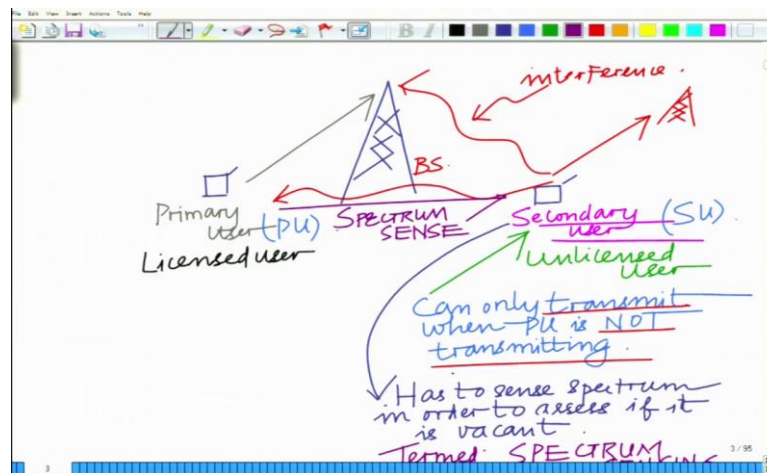 File Edit View Insert Actions Tools Help
interference.
BS.
Primary
user (PU)
Licensed user
SPECTRUM
SENSE
Secondary (SU).
user
Unlicensed
user
Can only transmit
when PU is NOT
transmitting.
Has to sense spectrum
in order to assess if it
is vacant.
Termed SPECTRUM
SENSING
3 / 95
3